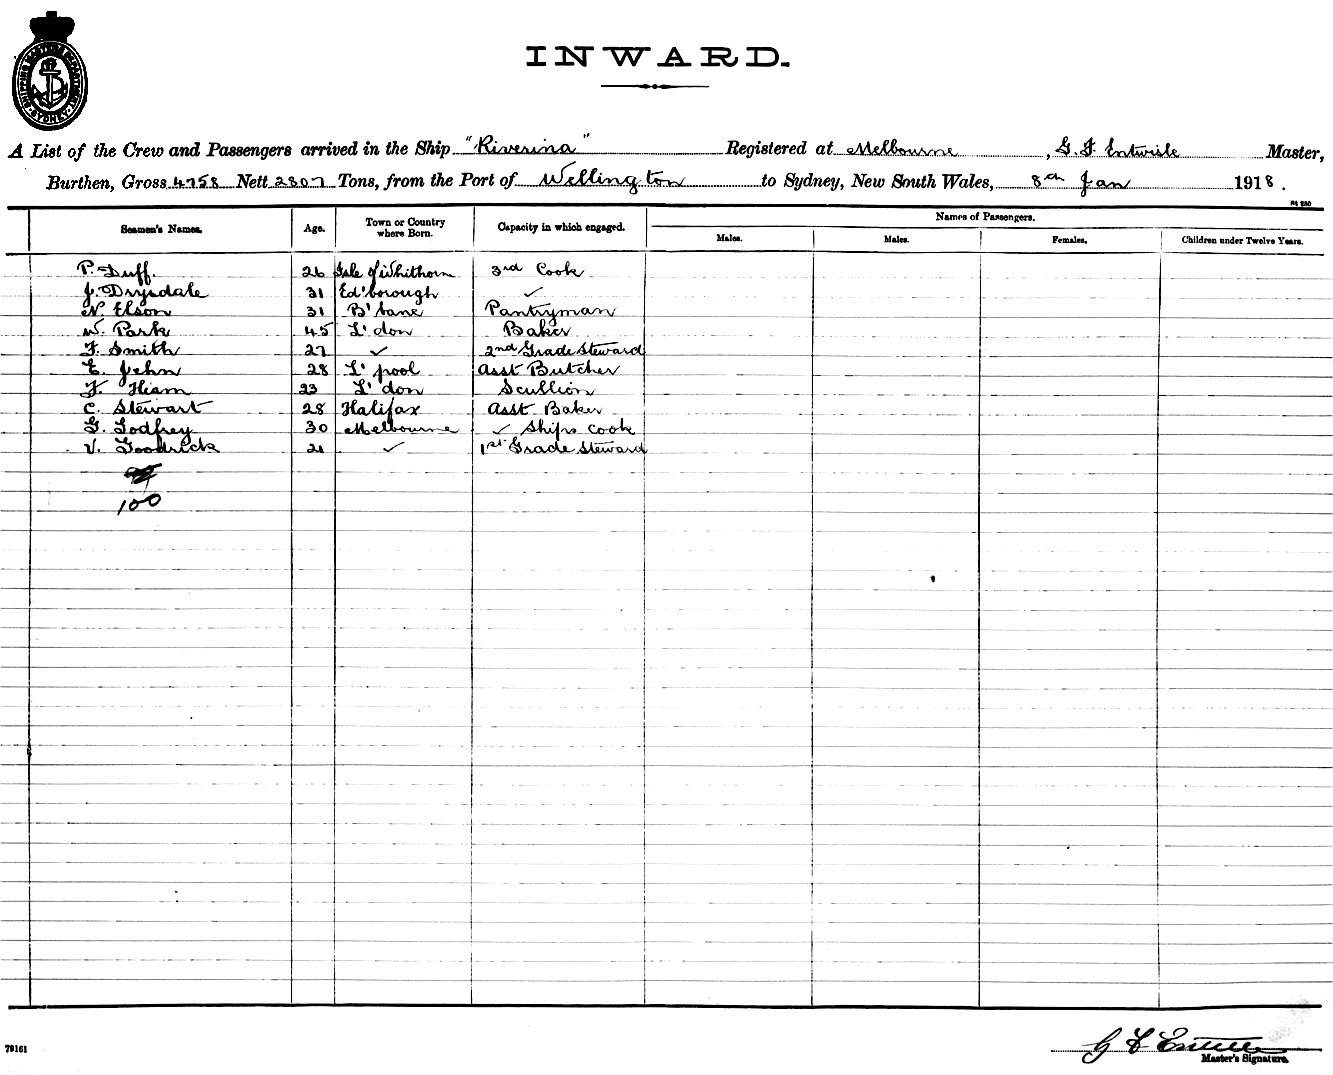 SHIPPING MASTER'S DEPARTMENT SYDNEY
INWARD.
A List of the Crew and Passengers arrived in the Ship "Riverina" Registered at Melbourne, G. F. Entwisle Master,
Burthen, Gross 4758 Nett 2807 Tons, from the Port of Wellington to Sydney, New South Wales, 8th Jan 1918.
Seamen's Names. Age. Town or Country where Born. Capacity in which engaged. Names of Passengers.
Males. Males. Females. Children under Twelve Years.
P. Duff. 26 Isle of Whithorn 3rd Cook
J. Drysdale 31 Ed'borough ✓
N. Elson 31 B'bane Pantryman
W. Park 45 L'don Baker
F. Smith 27 ✓ 2nd Grade Steward
E. John 28 L'pool Asst Butcher
F. Hiam 23 L'don Scullion
C. Stewart 28 Halifax Asst Baker
G. Godfrey 30 Melbourne ✓ Ships Cook
V. Goodrick 21 ✓ 1st Grade Steward
100
79161
Master's Signature.